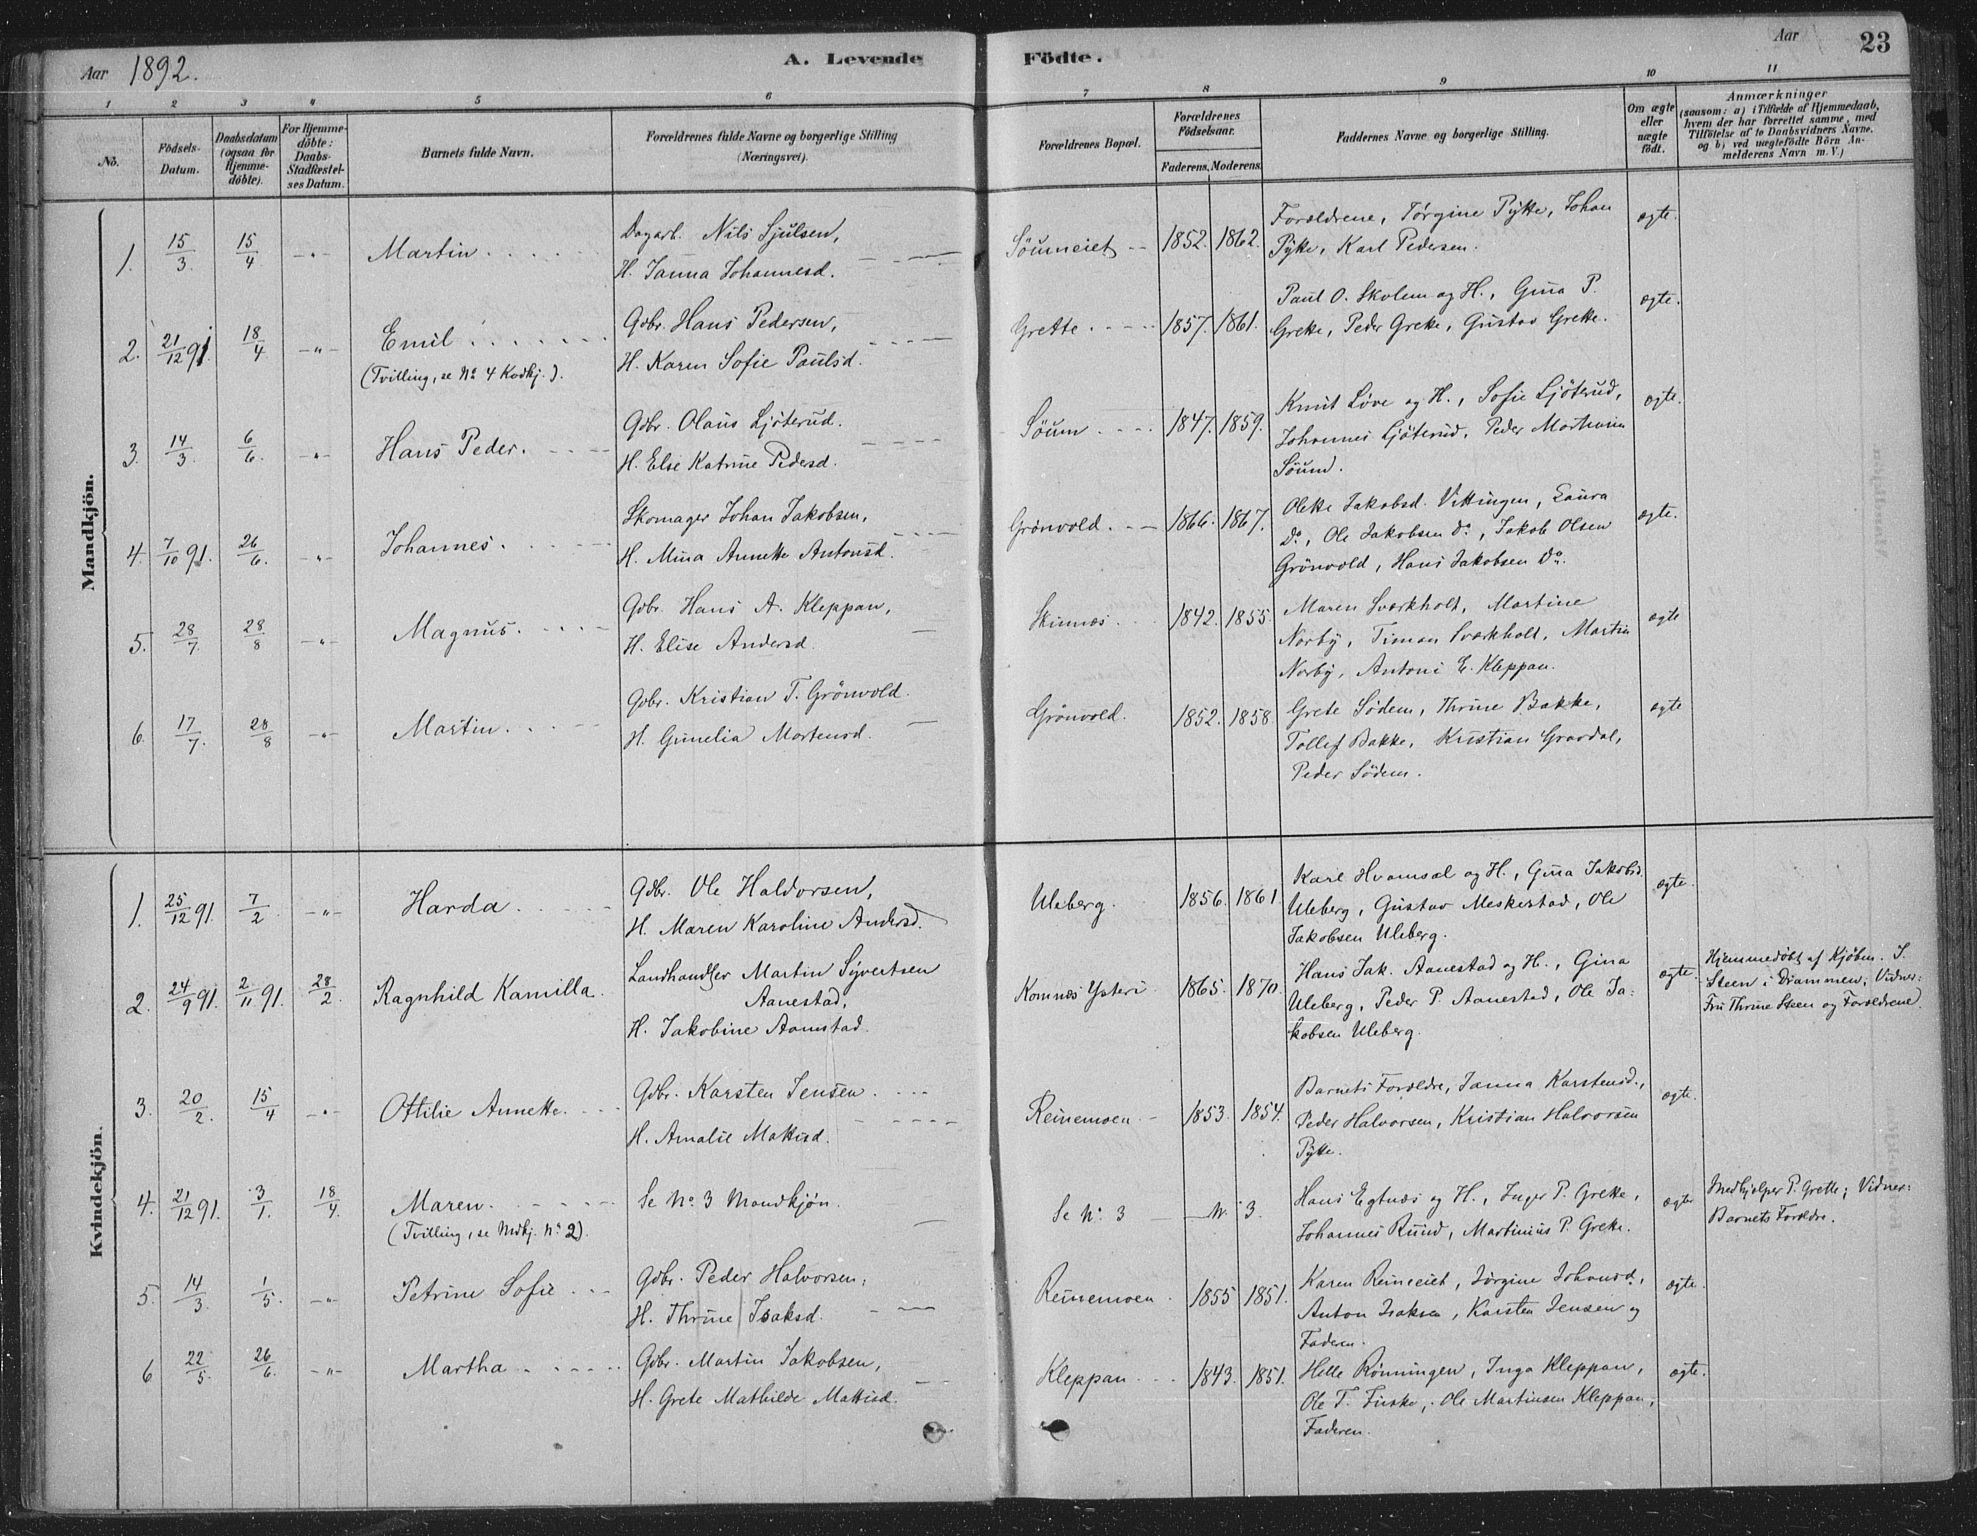 Aar 1892.
A. Levende Födte.
Aar
23
1 2 3 4 5 6 7 8 9 10 11
No.
Födsels-Datum.
Daabsdatum (ogsaa for Hjemme-döbte).
For Hjemme-döbte: Daabs-Stadfæstel-ses Datum.
Barnets fulde Navn.
Forældrenes fulde Navne og borgerlige Stilling (Næringsvei).
Forældrenes Bopæl.
Forældrenes Födselsaar.
Faderens. Moderens.
Faddernes Navne og borgerlige Stilling.
Om ægte eller uægte födt.
Anmærkninger
(saasom: a) i Tilfælde af Hjemmedaab,
hvem der har forrettet samme, med
Tilföielse af to Daabsvidners Navne,
og b) ved uægtefödte Börn An-
melderens Navn m. V.)
Mandkjön.
1. 15/3 15/4 -"- Martin
Dagarb. Nils Sjulsen,
H. Janna Johannesd.
Söumeiet 1852. 1862.
Forældrene, Törgine Pytte, Johan
Pytte, Karl Pedersen.
ægte.
2. 21/12 91. 18/4 -"- Emil
(Tvilling, se No 4 Kvdkj.).
Gdbr. Hans Pedersen,
H. Karen Sofie Paulsd.
Grette 1857. 1861.
Paul O. Skolem og H., Gina P.
Grette, Peder Grette, Gustav Grette.
ægte.
3. 14/3 6/6. -"- Hans Peder.
Gdbr. Olaus Ljöterud.
H. Else Katrine Pedersd.
Söum 1847. 1859.
Knut Löve og H., Sofie Ljöterud,
Johannes Ljöterud, Peder
Söum.
ægte.
4. 7/10 91. 26/6. -"- Johannes.
Skomager Johan Jakobsen,
H. Mina Annette Antonsd.
Grönvold. 1866. 1867.
Oleke Jakobsd. Vittingen, Laura
Do, Ole Jakobsen Do, Jakob Olsen
Grönvold, Hans Jakobsen Do.
ægte.
5. 28/7. 28/8 -"- Magnus.
Gdbr. Hans A. Kleppan,
H. Elise Andersd.
Skinnes 1842. 1855.
Maren Sværkholt, Martine
Norby, Timan Sværkholt, Martin
Norby, Antoni E. Kleppan.
ægte
6. 17/7. 28/8 -"- Martin.
Gdbr. Kristian T. Grönvold.
H. Gunelia Mortensd.
Grönvold. 1852. 1858
Grete Södem, Thrine Bakke,
Tollef Bakke, Kristian Gravdal,
Peder Södem.
ægte
Kvindekjön.
1. 25/12 91. 7/2 -"- Harda
Gdbr. Ole Haldorsen,
H. Maren Karoline Andersd.
Uleberg. 1856. 1861
Karl Hvamsal og H., Gina Jakobsd.
Uleberg, Gustav Meskestad, Ole
Jakobsen Uleberg.
ægte.
2. 24/9 91. 2/11 91. 28/2. Ragnhild Kamilla.
Landhandler Martin Syvertsen
Aanestad,
H. Jakobine Aanestad.
Komnæs Ysteri 1865. 1870.
Hans Jak. Aanestad og H., Gina
Uleberg, Peder P. Aanestad, Ole Ja-
kobsen Uleberg.
ægte.
Hjemmedöbt af Kjöbm. S.
Steen i Drammen; Vidner:
Fru Thrine Steen og Forældrene.
3. 20/2. 15/4 -"- Ottilie Annette.
Gdbr. Karsten Jensen
H. Amalie Mattisd.
Reinemoen 1853. 1854.
Barnets Forældre, Janna Karstensd.,
Peder Halvorsen, Kristian Halvorsen
Pytte.
ægte.
4. 21/12 91. 3/1. 18/4. Maren.
(Tvilling, se Mdkj. No 2).
Se No 3 Mandkjön.
Se No 3 - N. 3.
Hans Egtnæs og H., Inger P. Grette,
Johannes Ruud, Martinius P. Grette.
ægte
Medhjelper P. Grette; Vidner:
Barnets Forældre.
5. 14/3. 1/5. -"- Petrine Sofie
Gdbr. Peder Halvorsen,
H. Thrine Isaksd.
Reinemoen 1855 1851.
Karen Reineeiet, Jörgine Johansd.,
Anton Isaksen, Karsten Jensen og
Faderen.
ægte.
6 22/5. 26/6. -"- Martha
Gdbr. Martin Jakobsen,
H. Grete Mathilde Mattisd.
Kleppan 1843. 1851.
Helle Rönningen, Inga Kleppan,
Ole T. Fuske, Ole Martinsen Kleppan,
Faderen.
ægte.